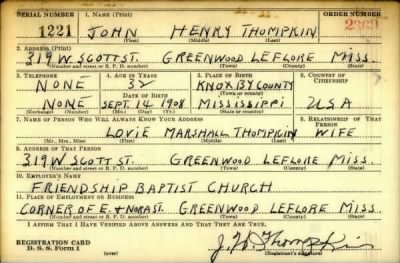 SERIAL NUMBER 1. NAME (Print) ORDER NUMBER
1221 JOHN HENRY THOMPKIN
(First) (Middle) (Last)
2. ADDRESS (Print)
319 W SCOTT ST. GREENWOOD LEFLORE MISS.
(Number and street or R. F. D. number) (Town) (County) (State)
3. TELEPHONE 4. AGE IN YEARS 5. PLACE OF BIRTH 6. COUNTRY OF CITIZENSHIP
NONE 32 KNOXBY COUNTY
DATE OF BIRTH (Town or county)
NONE SEPT. 14 1908 MISSISSIPPI USA
(Exchange) (Number) (Mo.) (Day) (Yr.) (State or country)
7. NAME OF PERSON WHO WILL ALWAYS KNOW YOUR ADDRESS 8. RELATIONSHIP OF THAT PERSON
LOVIE MARSHALL THOMPKIN WIFE
(Mr., Mrs., Miss) (First) (Middle) (Last)
9. ADDRESS OF THAT PERSON
319 W SCOTT ST. GREENWOOD LEFLORE MISS.
(Number and street or R. F. D. number) (Town) (County) (State)
10. EMPLOYER'S NAME
FRIENDSHIP BAPTIST CHURCH
11. PLACE OF EMPLOYMENT OR BUSINESS
CORNER OF E. + NORA ST. GREENWOOD LEFLORE MISS
(Number and street or R. F. D. number) (Town) (County) (State)
I AFFIRM THAT I HAVE VERIFIED ABOVE ANSWERS AND THAT THEY ARE TRUE.
REGISTRATION CARD
D. S. S. Form 1 (over) (Registrant's signature)
J. H. Thompkin